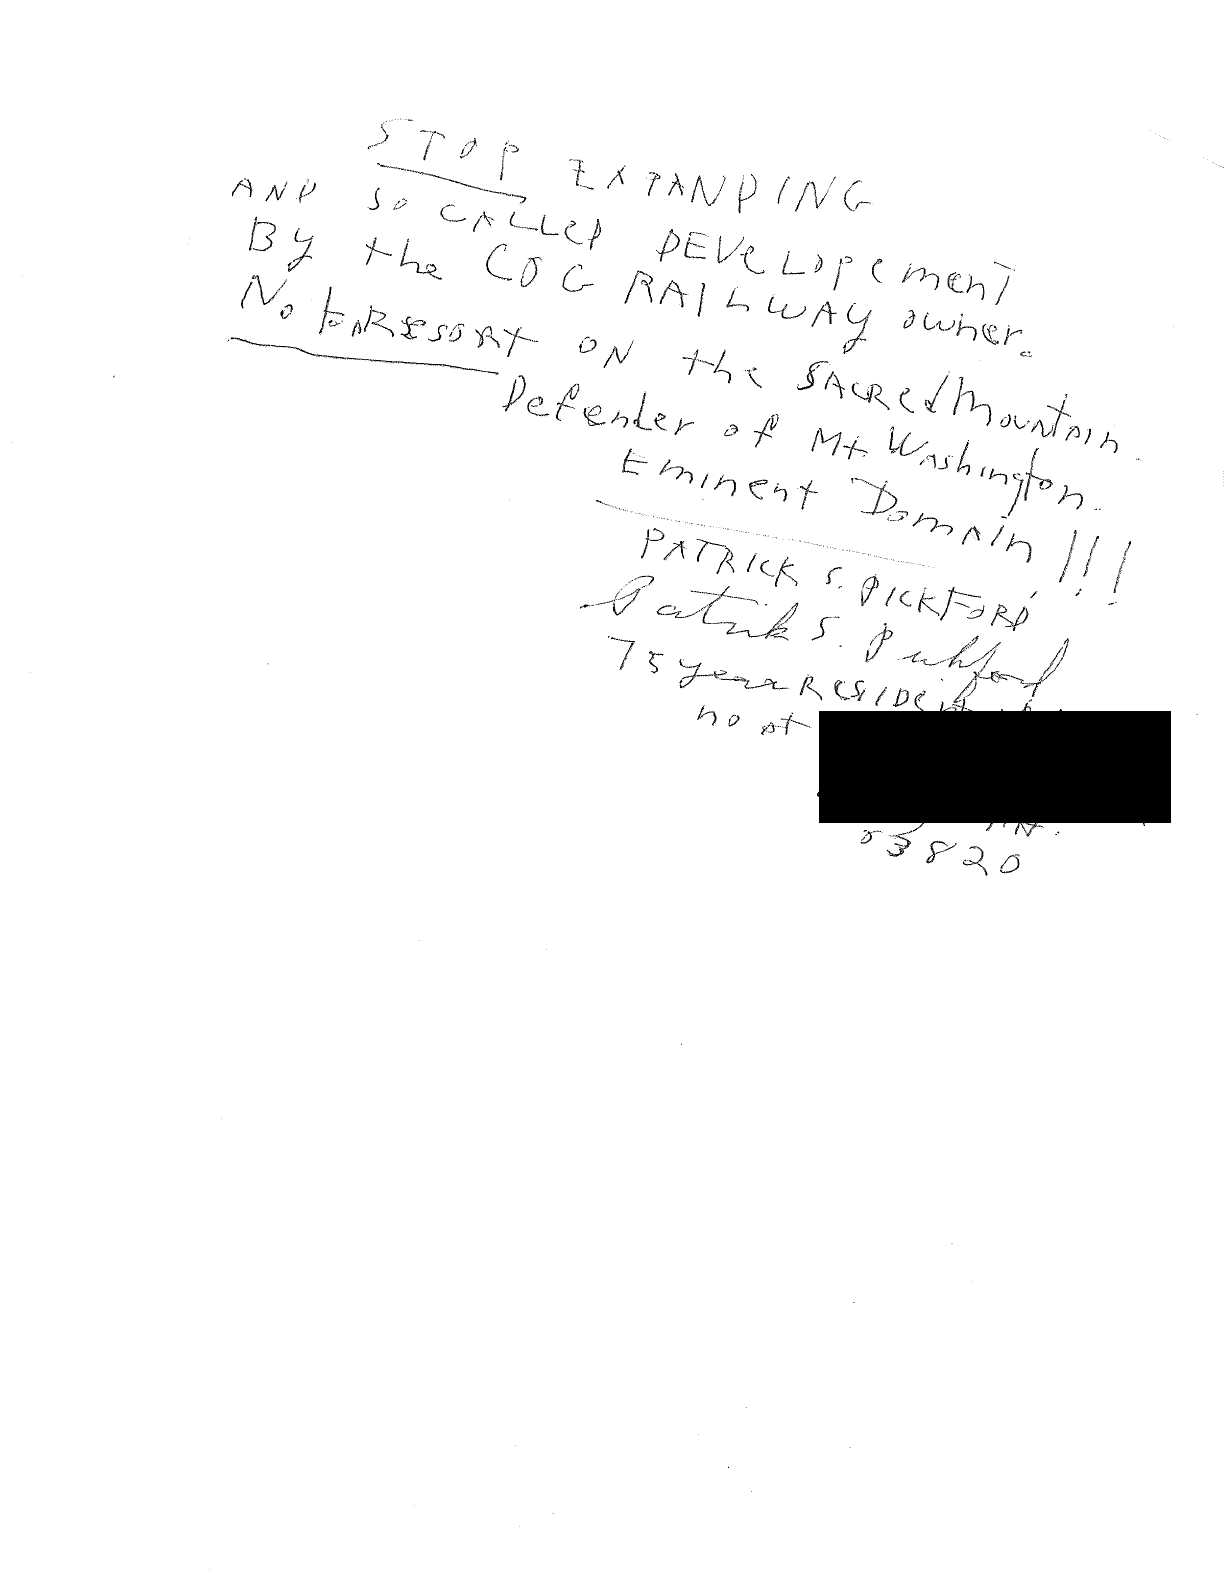 STOP EXPANDING
AND SO CALLED DEVELOPEMENT
By the COG RAILWAY owner.
No to A RESORT ON the SACRED Mountain.
Defender of Mt. Washington.
Eminent Domain!!!
PATRICK S. PICKFORD
Patrick S. Pickford
75 year RESIDENT
no at
03820